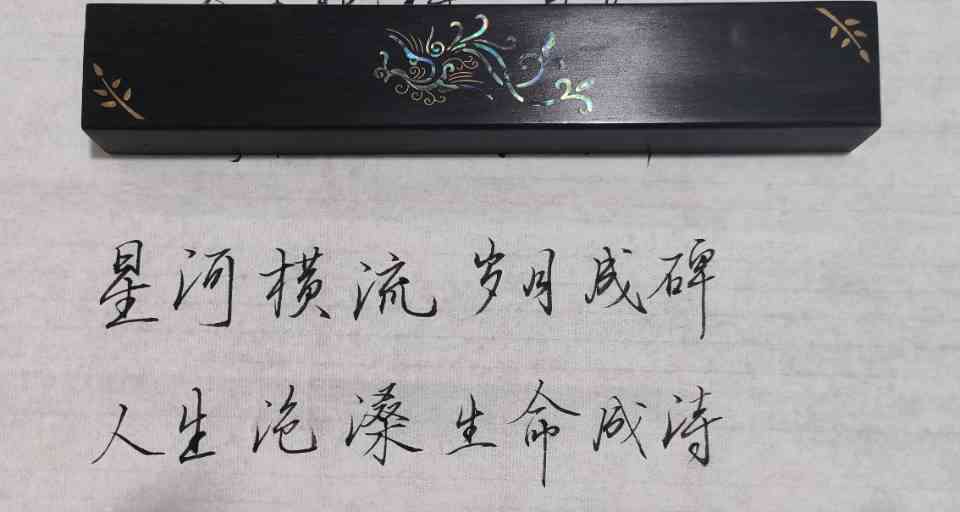 星河横流 岁月成碑
人生沧溪 生命成涛